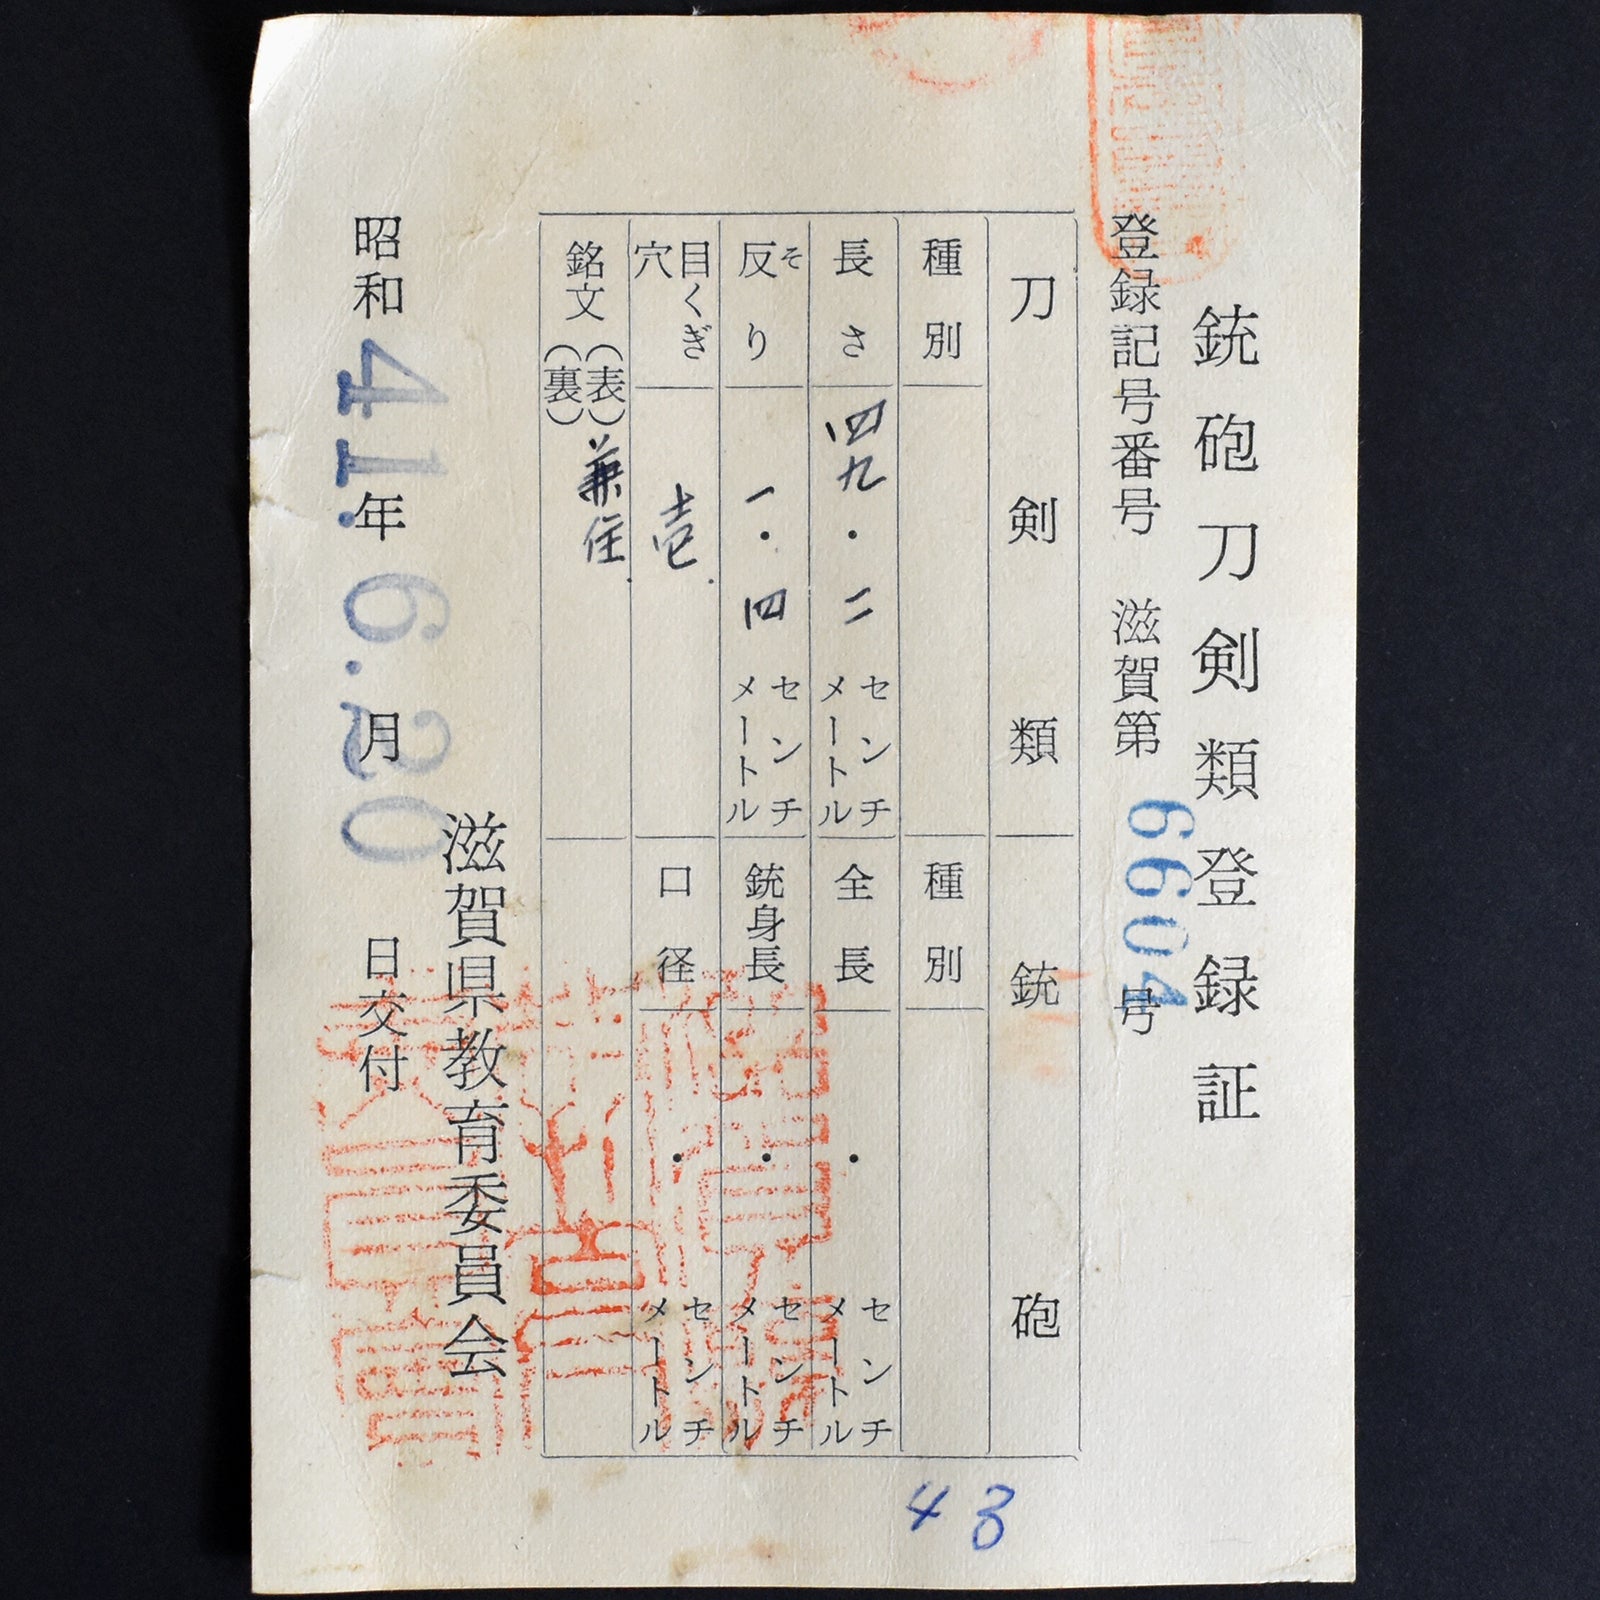 銃砲刀剣類登録証
登録記号番号 滋賀第 6604 号
刀剣類
銃砲
種別
種別
長さ 四九・二 センチメートル
全長 ・ センチメートル
反り そ 一・四 センチメートル
銃身長 ・ センチメートル
目くぎ穴 壱
口径 ・ センチメートル
銘文 (表) 兼住
(裏)
滋賀県教育委員会
昭和 41年 6.月 20 日交付
43